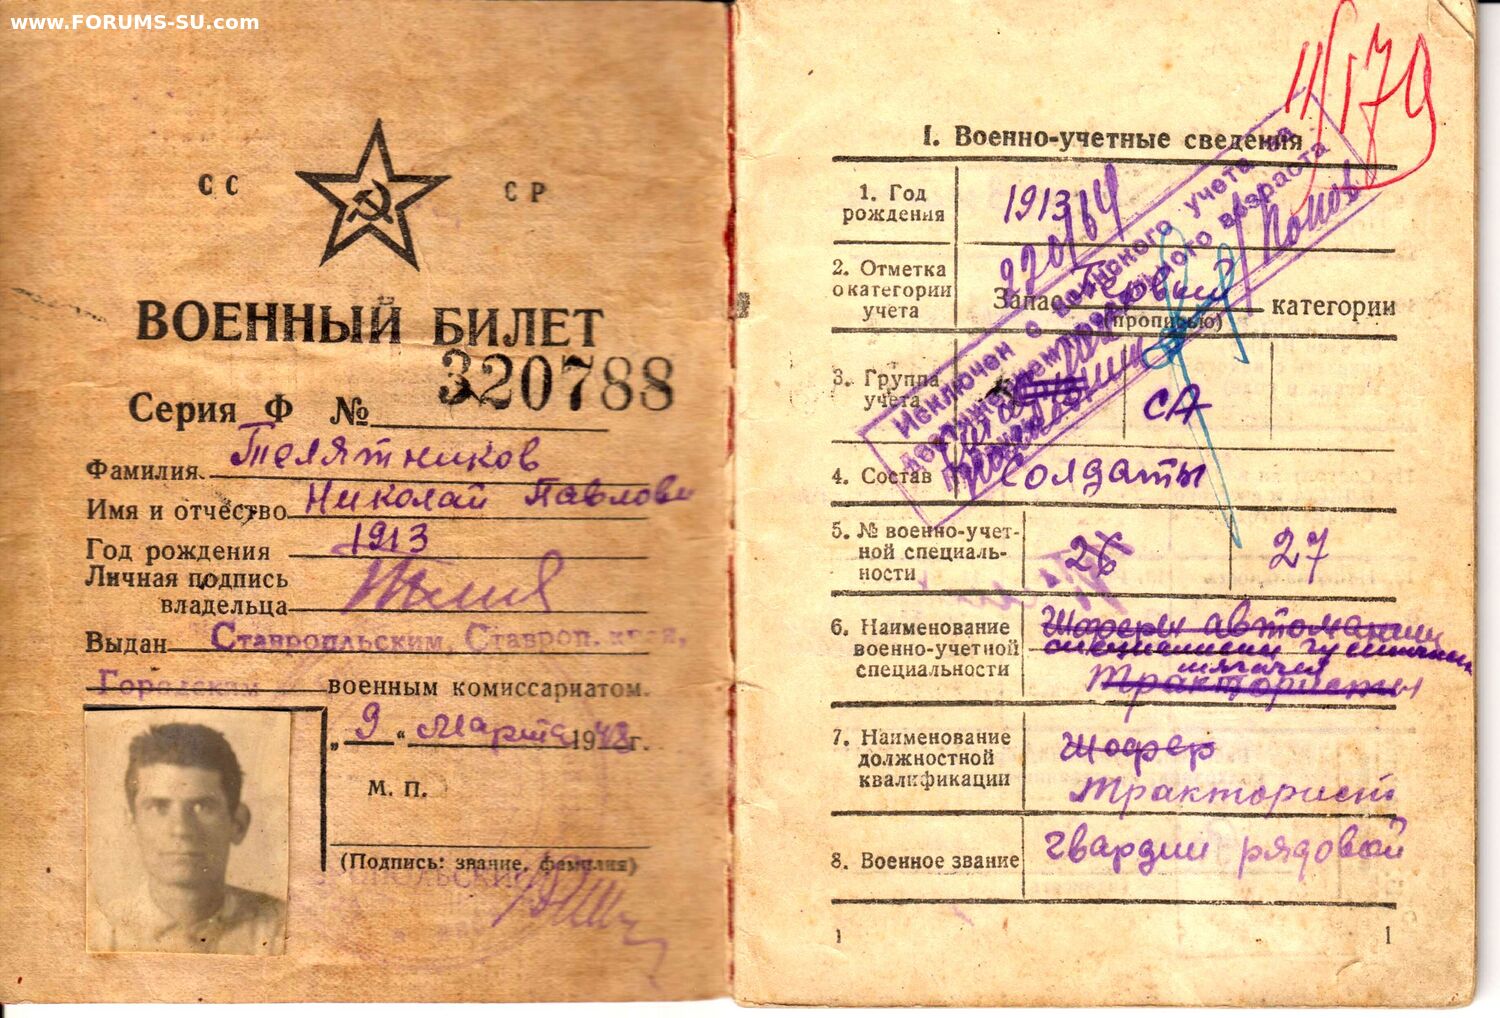 www.FORUMS-SU.com
СС СР
ВОЕННЫЙ БИЛЕТ
Серия Ф № 320788
Фамилия Телятников
Имя и отчество Николай Павлови
Год рождения 1913
Личная подпись
владельца
Выдан Ставропльским, Ставроп. края,
Городским военным комиссариатом.
„9“ марта 1948г.
М. П.
(Подпись: звание, фамилия)
11/179
I. Военно-учетные сведения
1. Год
рождения
1913
220/64
2. Отметка
о категории
учета
Запас первой категории
(прописью)
Исключен с воинского учета за
достижением предельного возраста
3. Группа
учета
СА
4. Состав Солдаты
5. № военно-учет-
ной специаль-
ности
26 27
6. Наименование
военно-учетной
специальности
Шоферы автомашин
тягачей
Трактористы
7. Наименование
должностной
квалификации
Шофер
тракторист
8. Военное звание гвардии рядовой
1 1